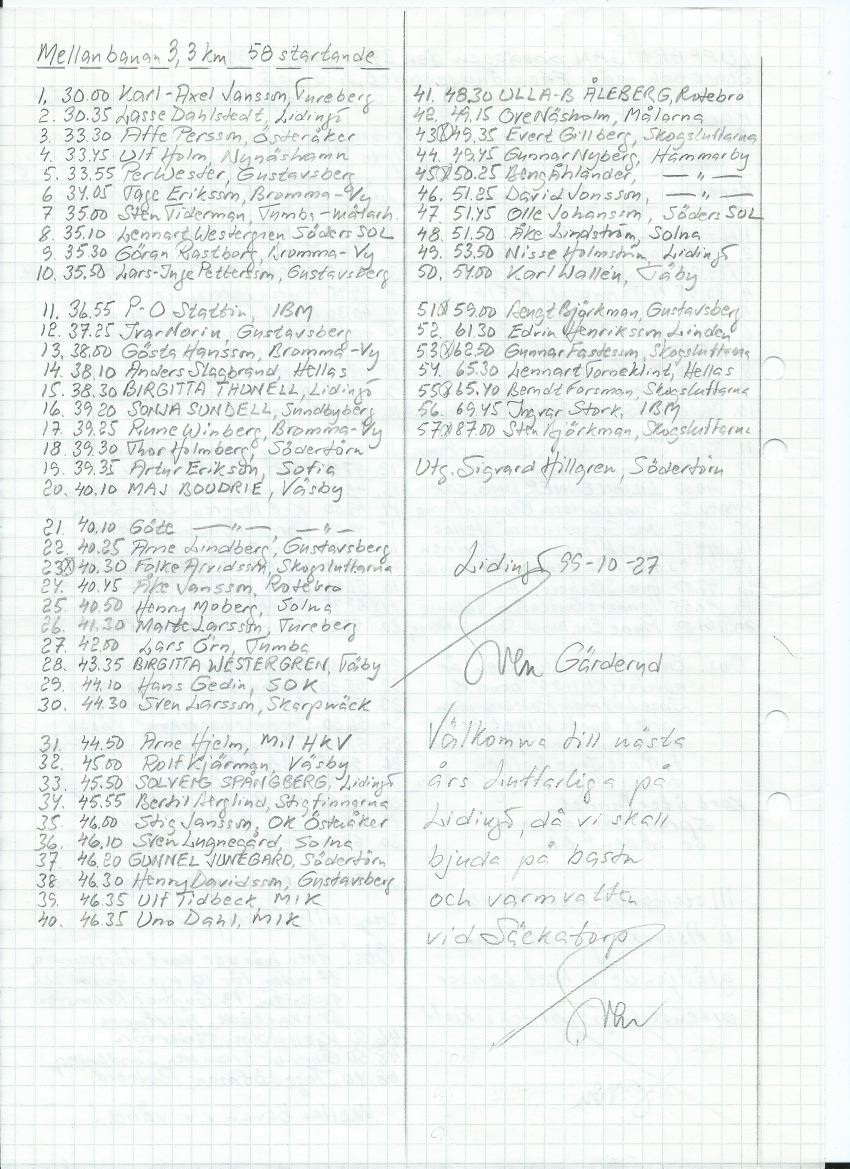 Mellanbanan 3,3 km 58 startande
1. 30.00 Karl-Axel Jansson, Tureberg
2. 30.35 Lasse Dahlstedt, Lidingö
3. 33.30 Affe Persson, Österåker
4. 33.45 Ulf Holm, Nynäshamn
5. 33.55 Per Wester, Gustavsberg
6. 34.05 Tage Eriksson, Bromma-Vy
7. 35.00 Sten Tiderman, Tumba-Mälarh.
8. 35.10 Lennart Westergren Söders SOL
9. 35.30 Göran Rastborg, Bromma-Vy
10. 35.50 Lars-Inge Pettersson, Gustavsberg
11. 36.55 P-O Stattin, IBM
12. 37.25 Ivar Norin, Gustavsberg
13. 38.00 Gösta Hansson, Bromma-Vy
14. 38.10 Anders Slagbrand, Hellas
15. 38.30 BIRGITTA THUNELL, Lidingö
16. 39.20 SONJA SUNDELL, Sundbyberg
17. 39.25 Rune Winberg, Bromma-Vy
18. 39.30 Thor Holmberg, Södertörn
19. 39.35 Artur Erikson, Sofia
20. 40.10 MAJ BOUDRIE, Väsby
21. 40.10 Göte —〃— —〃—
22. 40.25 Arne Lindberg, Gustavsberg
23 ⓧ 40.30 Folke Arvidsson, Skogsluffarna
24. 40.45 Åke Jansson, Rotebro
25. 40.50 Henry Moberg, Solna
26. 41.30 Matte Larsson, Tureberg
27. 42.00 Lars Örn, Tumba
28. 43.35 BIRGITTA WESTERGREN, Täby
29. 44.10 Hans Gedin, SOK
30. 44.30 Sven Larsson, Skarpnäck
31. 44.50 Arne Hjelm, Mil HKV
32. 45.00 Rolf Kjärman, Väsby
33. 45.50 SOLVEIG SPÅNGBERG, Lidingö
34. 45.55 Bertil Berglind, Stigfinnarna
35. 46.00 Stig Jansson, OK Österåker
36. 46.10 Sven Lugnegård, Solna
37 46.20 GUNNEL JUNEGARD, Södertörn
38. 46.30 Henry Davidsson, Gustavsberg
39. 46.35 Ulf Tidbeck, MIK
40. 46.35 Uno Dahl, MIK
41. 48.30 ULLA-B ÅLEBERG, Rotebro
42. 49.15 Ove Näsholm, Målarna
43 ⓧ 49.35 Evert Gillberg, Skogsluffarna
44. 49.45 Gunnar Nyberg, Hammarby
45 ⓧ 50.25 Beng Åhlander, —〃—
46. 51.25 David Jonsson, —〃—
47. 51.45 Olle Johansson, Söders SOL
48. 51.50 Åke Lindström, Solna
49. 53.50 Nisse Holmström, Lidingö
50. 54.00 Karl Wallén, Täby
51 ⓧ 59.00 Bengt Björkman, Gustavsberg
52. 61.30 Edvin Henriksson Linden
53 ⓧ 62.50 Gunnar Fastesson, Skogsluffarna
54. 65.30 Lennart Torneklint, Hellas
55 ⓧ 65.40 Berndt Forsman, Skogsluffarna
56. 69.45 Ingvar Stork, IBM
57 ⓧ 87.00 Sten Björkman, Skogsluffarna
Utg. Sigvard Hillgren, Södertörn
Lidingö 99-10-27
Sven Gärderud
Välkomna till nästa
års Luffarliga på
Lidingö, då vi skall
bjuda på bastu
och varmvatten
vid Säckatorp
Sven